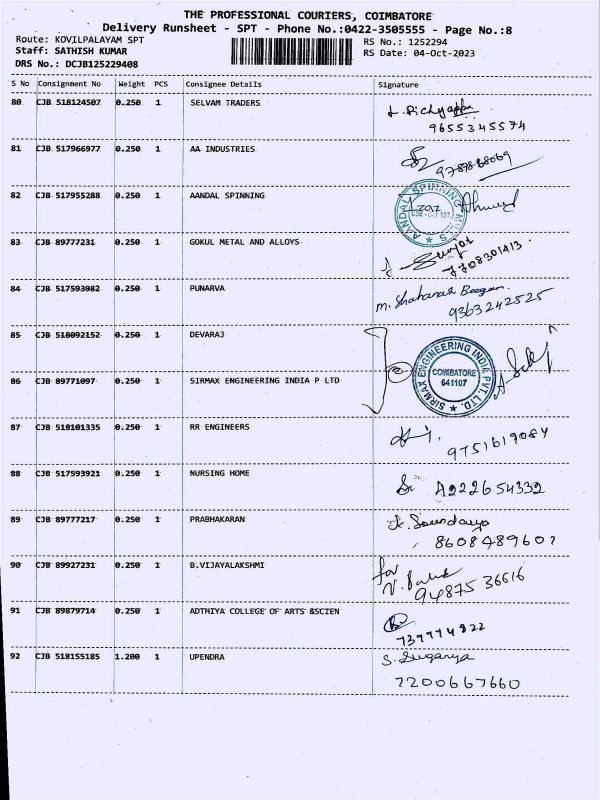 THE PROFESSIONAL COURIERS, COIMBATORE
Delivery Runsheet - SPT - Phone No.:0422-3505555 - Page No.:8
Route: KOVILPALAYAM SPT
RS No.: 1252294
Staff: SATHISH KUMAR
RS Date: 04-Oct-2023
DRS No.: DCJB125229408
S No Consignment No Weight PCS Consignee Details Signature
80 CJB 518124507 0.250 1 SELVAM TRADERS
9655345574
81 CJB 517966977 0.250 1 AA INDUSTRIES
82 CJB 517955288 0.250 1 AANDAL SPINNING
AANDAL SPINNING MILLS
83 CJB 89777231 0.250 1 GOKUL METAL AND ALLOYS
7708301413
84 CJB 517593982 0.250 1 PUNARVA
9363242525
85 CJB 518092152 0.250 1 DEVARAJ
86 CJB 89771097 0.250 1 SIRMAX ENGINEERING INDIA P LTD
SIRMAX ENGINEERING INDIA PVT. LTD.
COIMBATORE
641107
87 CJB 518101335 0.250 1 RR ENGINEERS
9751619084
88 CJB 517593921 0.250 1 NURSING HOME
89 CJB 89777217 0.250 1 PRABHAKARAN
90 CJB 89927231 0.250 1 B.VIJAYALAKSHMI
for
94875 36616
91 CJB 89879714 0.250 1 ADTHIYA COLLEGE OF ARTS &SCIEN
92 CJB 518155185 1.200 1 UPENDRA
S. Suganya
7200667660